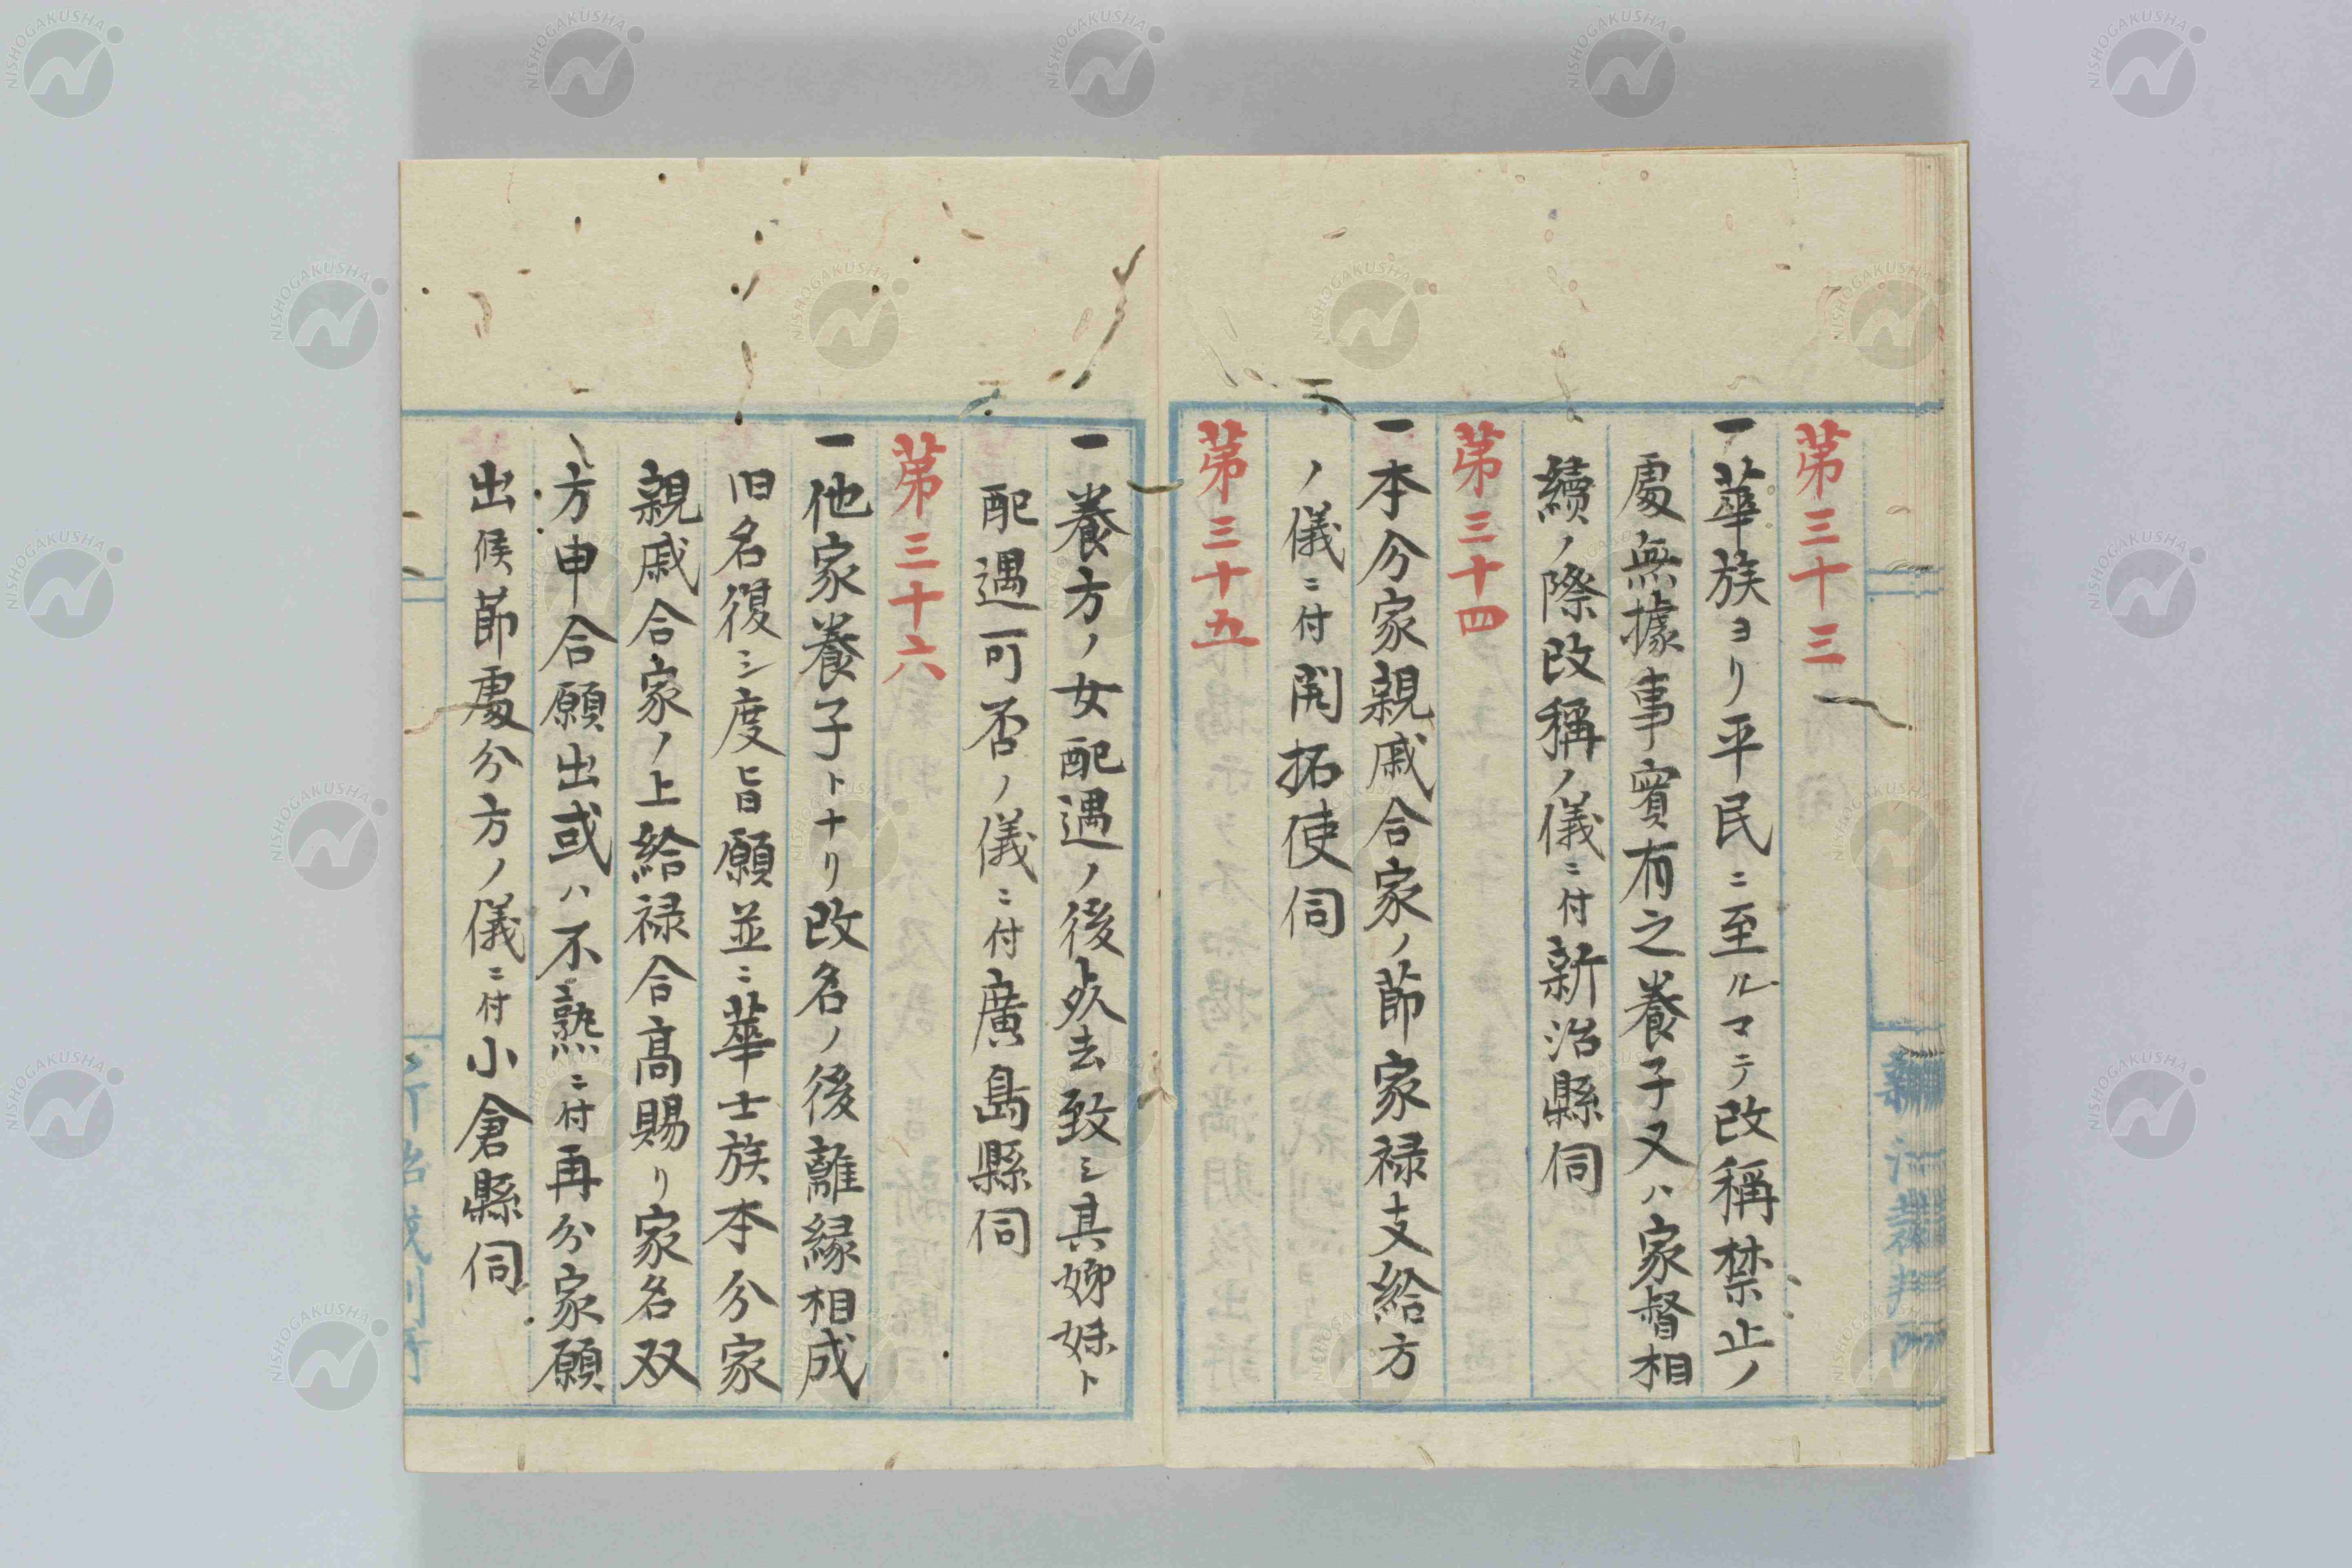 第三十三
一華族ヨリ平民ニ至ルマテ改稱禁止ノ
處無據事實有之養子又ハ家督相
續ノ際改稱ノ儀ニ付新治縣伺
第三十四
一本分家親戚合家ノ節家禄支給方
ノ儀ニ付開拓使伺
第三十五
一養方ノ女配遇ノ後死去致シ其姉妹ト
配遇可否ノ儀ニ付廣島縣伺
第三十六
一他家養子トナリ改名ノ後離縁相成
旧名復シ度旨願並ニ華士族本分家
親戚合家ノ上給禄合高賜リ家名双
方申合願出或ハ不熟ニ付再分家願
出候節處分方ノ儀ニ付小倉縣伺
NISHOGAKUSHA